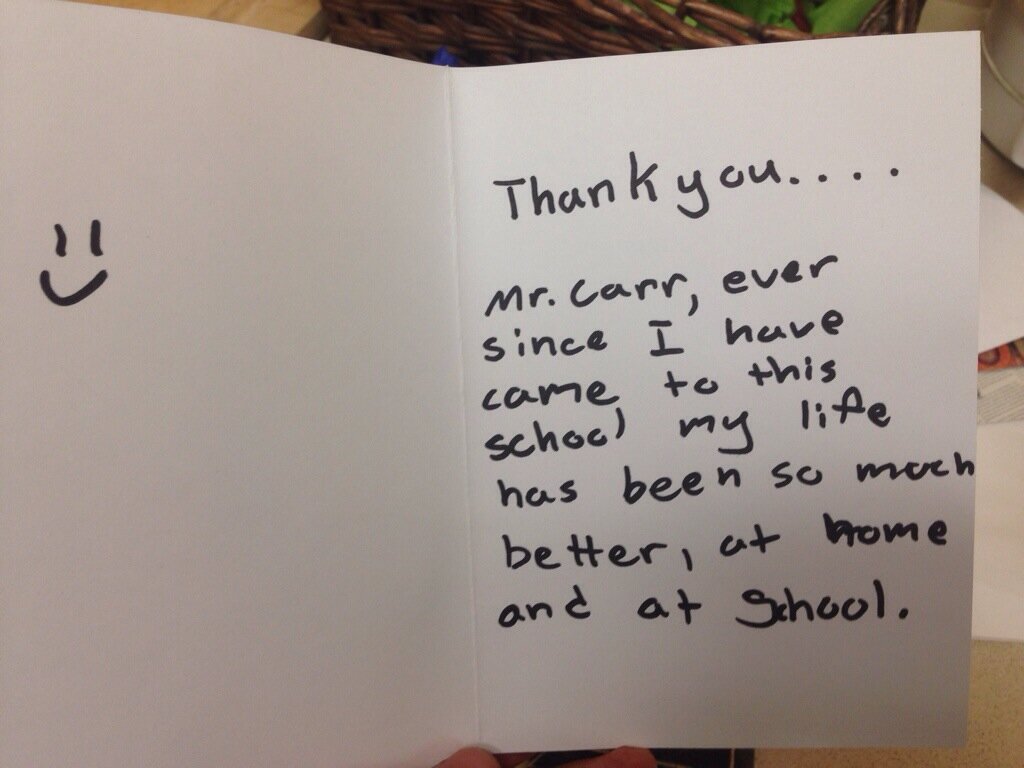 Thank you....
Mr. Carr, ever
since I have
came to this
school my life
has been so much
better, at home
and at School.